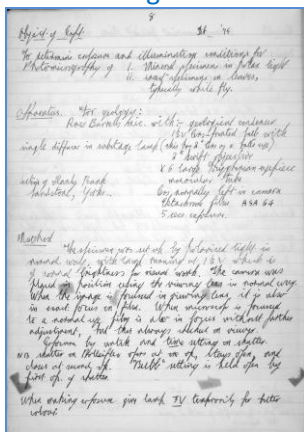 8
Object of
To determine exposure and illuminating conditions for
Photomicrography of 1. Mineral specimens in polar light
ii. specimens on leaves,
typically white fly.
Apparatus. For geology:
with geological condenser
12V bulb with
single diffuser in substage lamp
2" Swift objective
x 6 large eyepiece
monocular tube
Sandstone, Yorks. lens normally left in camera
Ektachrome film ASA 64
5 sec exposure.
Method
The specimen was set up by polarized light in
normal way, with lamp running at 12V which is
of normal brightness for visual work. The camera was
placed in position using the viewing lens in normal way.
When the image is focused in viewing lens, it is also
in exact focus on film. When microscope is focused
to a normal eye film is also in focus without further
adjustment, but this always checked on viewer.
Exposure by watch and time setting on shutter.
NB shutter on opens at one op, stays open, and
closes at second op. "Bulb" setting is held open by
first op. of shutter.
When making exposure give lamp temporarily for better
colour.